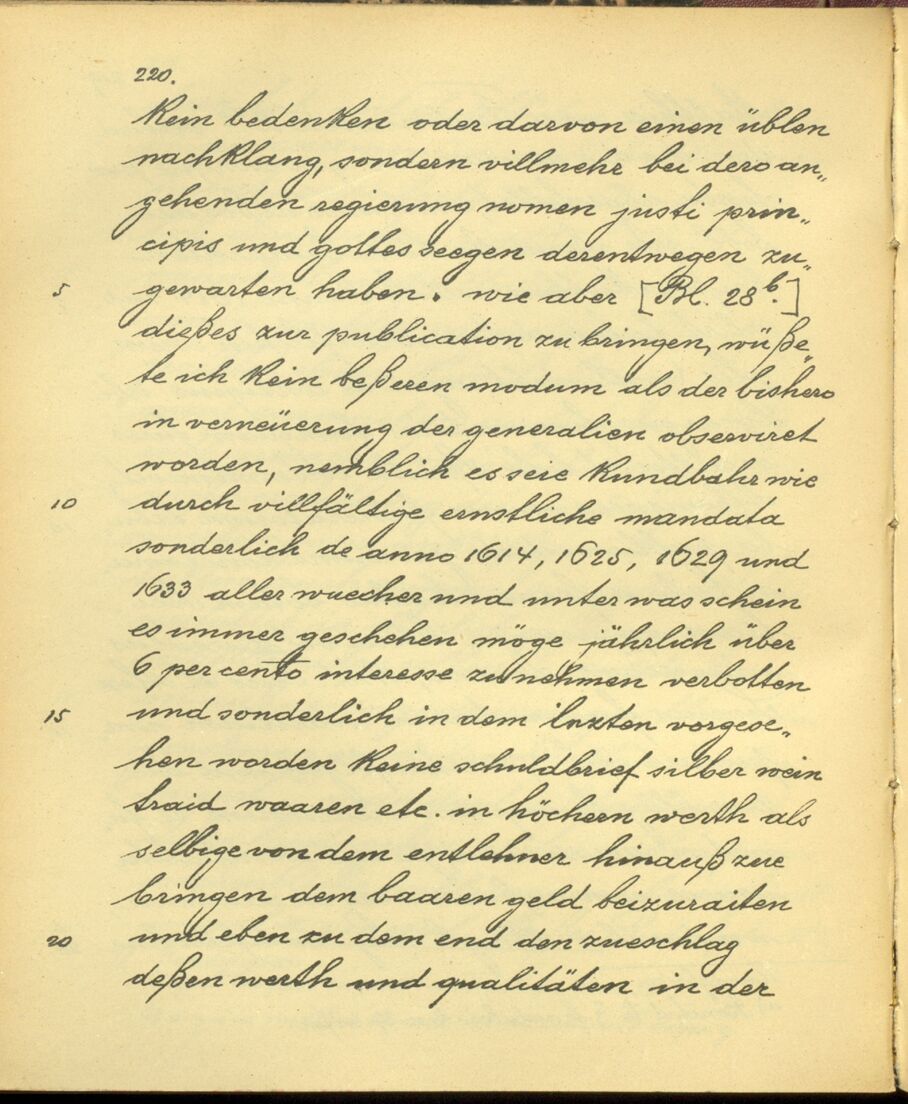 220.
kein bedenken oder darvon einen üblen
nachklang, sondern villmehr bei dero an„
gehenden regierung nomen justi prin„
cipis und gottes seegen derentwegen zu„
5 gewarten haben. wie aber [Bl. 28b.]
dießes zur publication zu bringen, wüße„
te ich kein beßeren modum als der bishero
in verneüerung der generalien observiret
worden, nemblich es seie kundbahr wie
10 durch villfältige ernstliche mandata
sonderlich de anno 1614, 1625, 1629 und
1633 aller wuecher und unter was schein
es immer geschehen möge jährlich über
6 per cento interesse zu nehmen verbotten
15 und sonderlich in dem lezten vorgese„
hen worden keine schuldbrief silber wein
traid waaren etc. in höchern werth als
selbige von dem entlehner hinauß zue
bringen dem baaren geld beizuraiten
20 und eben zu dem end den zueschlag
deßen werth und qualitäten in der